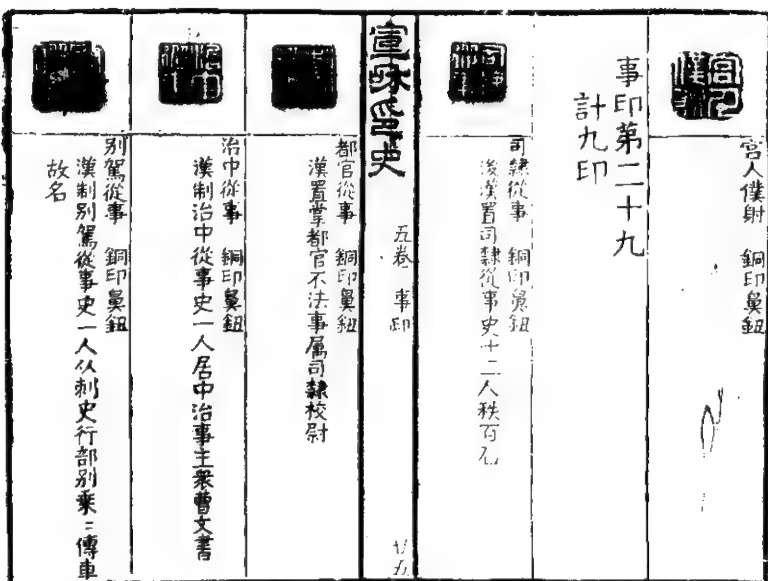 宮人僕射　銅印鼻鈕
事印第二十九
計九印
司隸從事　銅印鼻鈕
後漢置司隸從事史十二人秩百石
宣和印史
五卷　事印
廿五
都官從事　銅印鼻鈕
漢置掌都官不法事屬司隸校尉
治中從事　銅印鼻鈕
漢制治中從事史一人居中治事主衆曹文書
別駕從事　銅印鼻鈕
漢制別駕從事史一人从刺史行部別乘〻傳車
故名